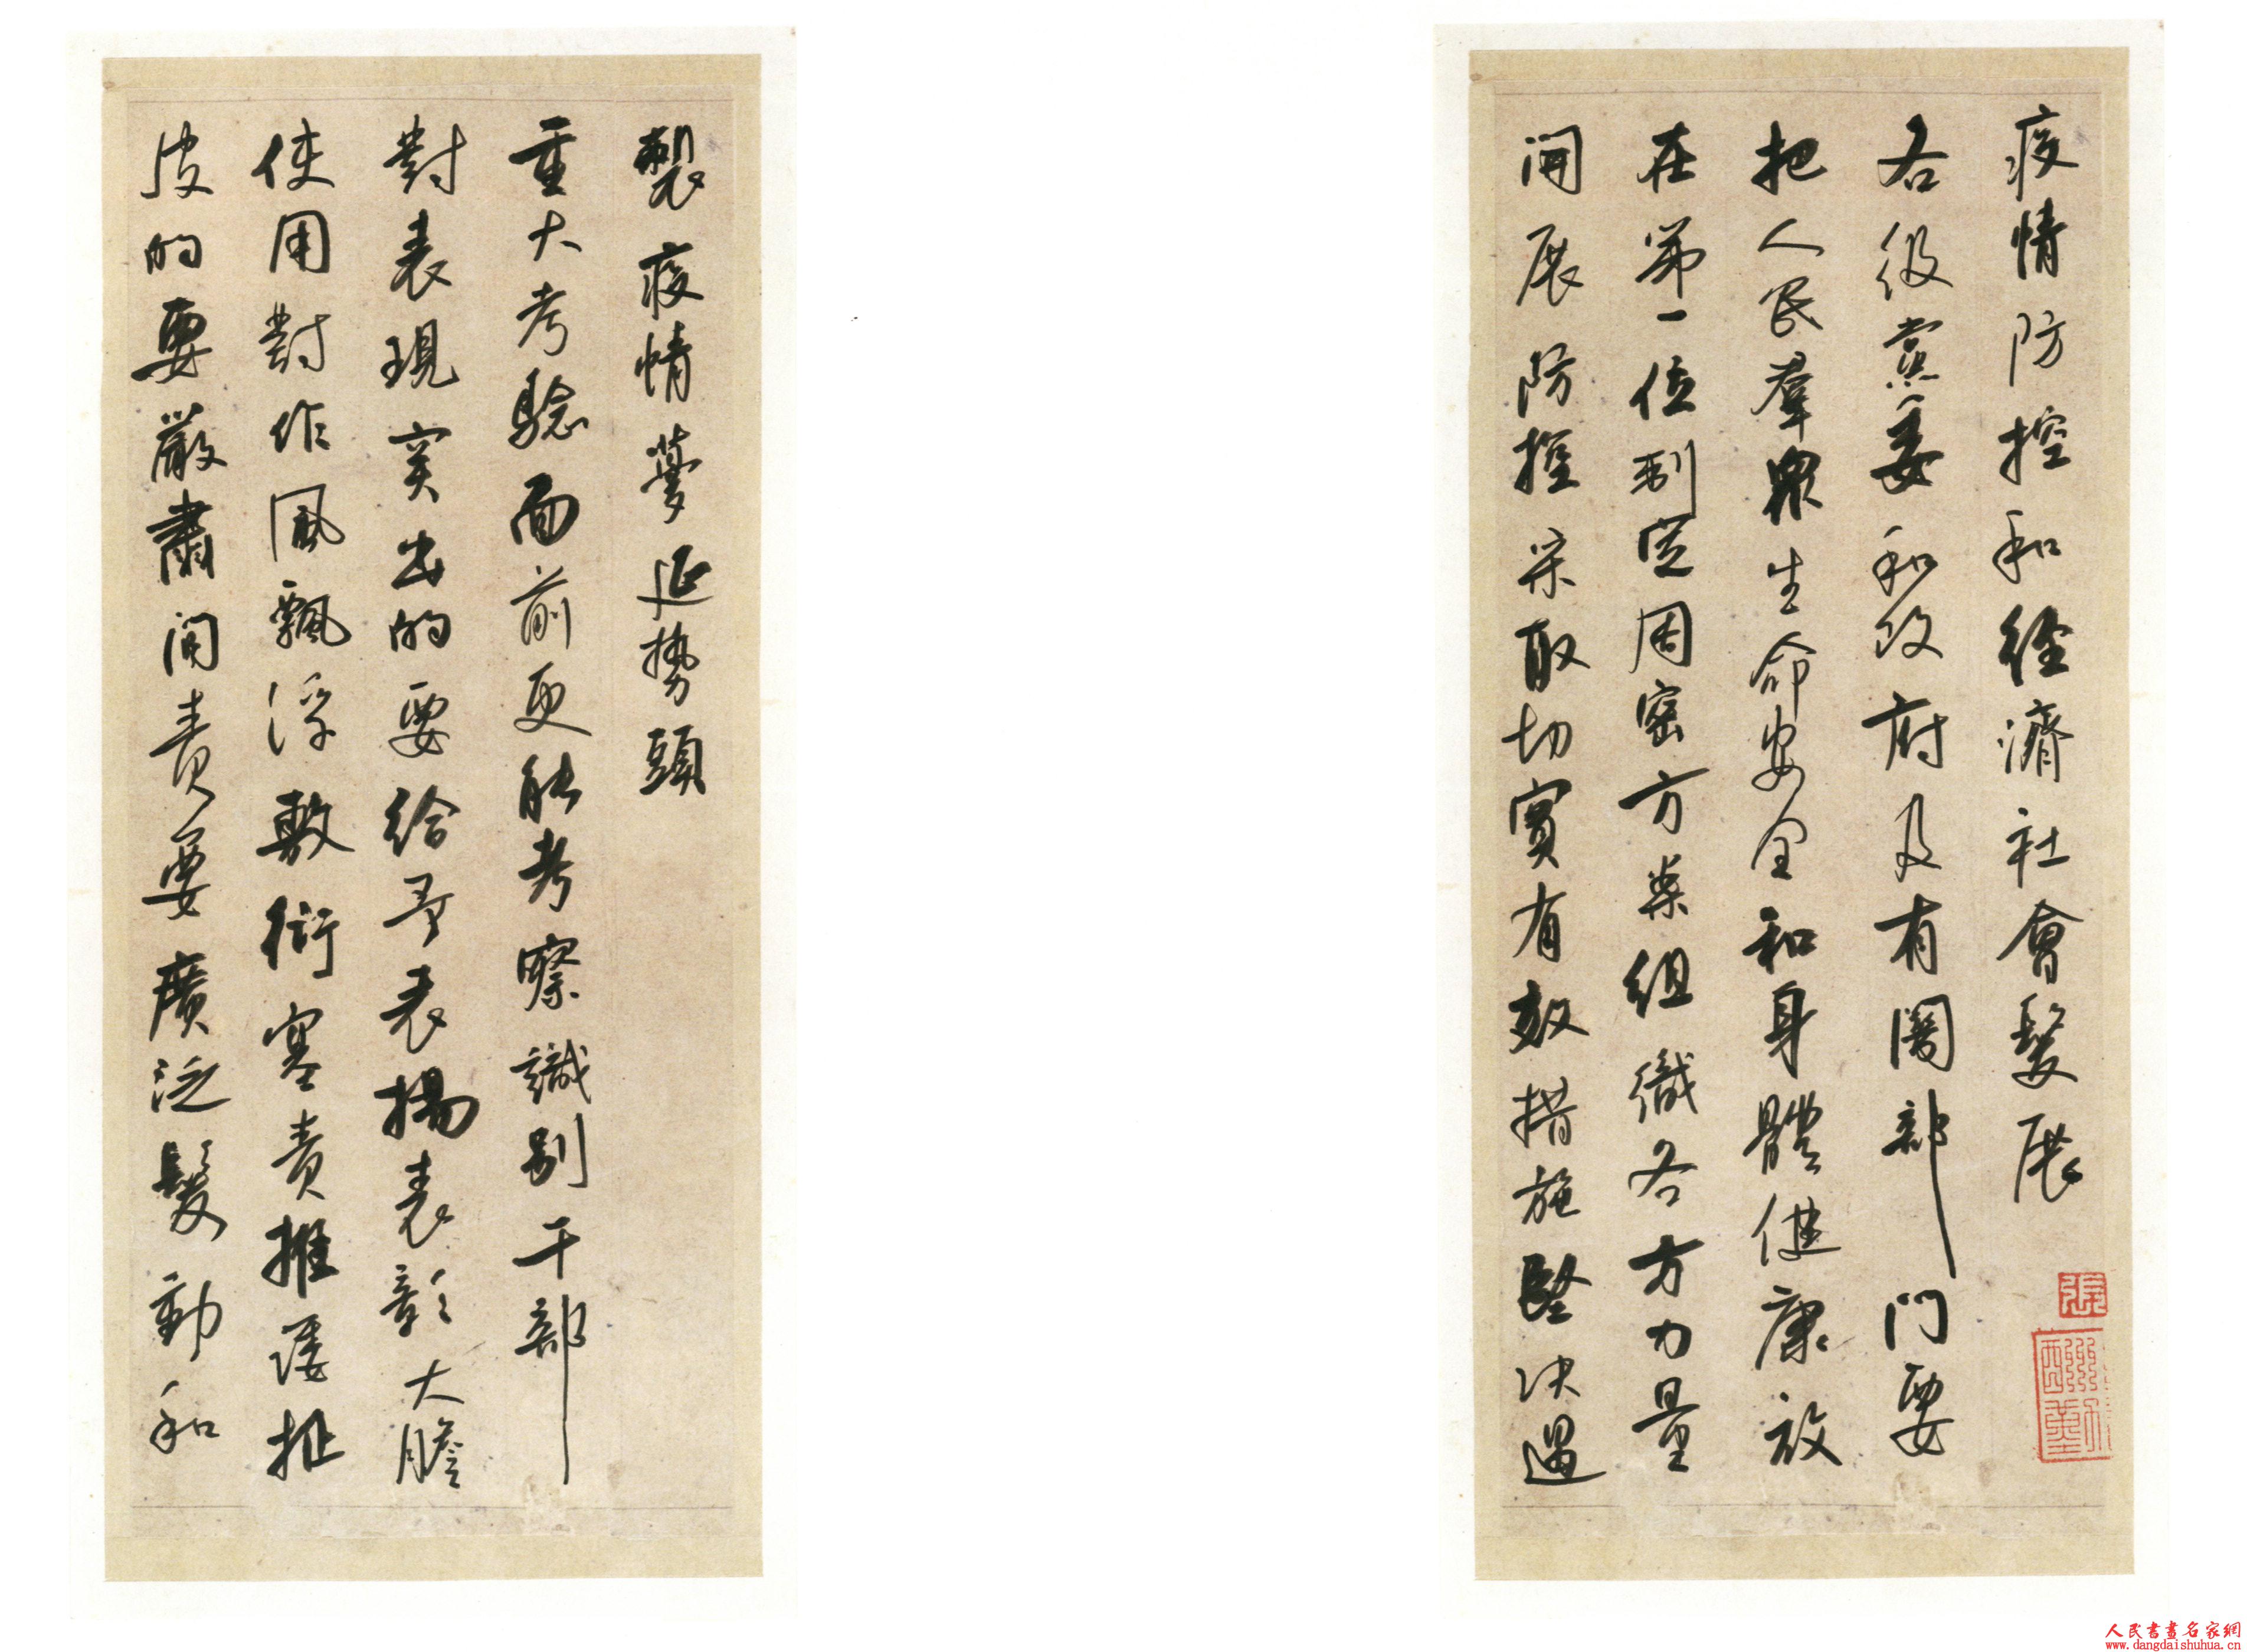 疫情防控和經濟社會發展
各级黨委和政府及有関部門要
把人民羣衆生命安全和身體健康放
在第一位制定周密方案組織各方力量
開展防控采取切實有效措施堅决遏
製疫情蔓延势頭
重大考驗面前更能考察識别干部
對表現突出的要給予表揚表彰大膽
使用對作風飄浮敷衍塞責推諉扯
皮的要嚴肅问責要廣泛發動和
張
人民書畫名家網
www.dangdaishuhua.cn